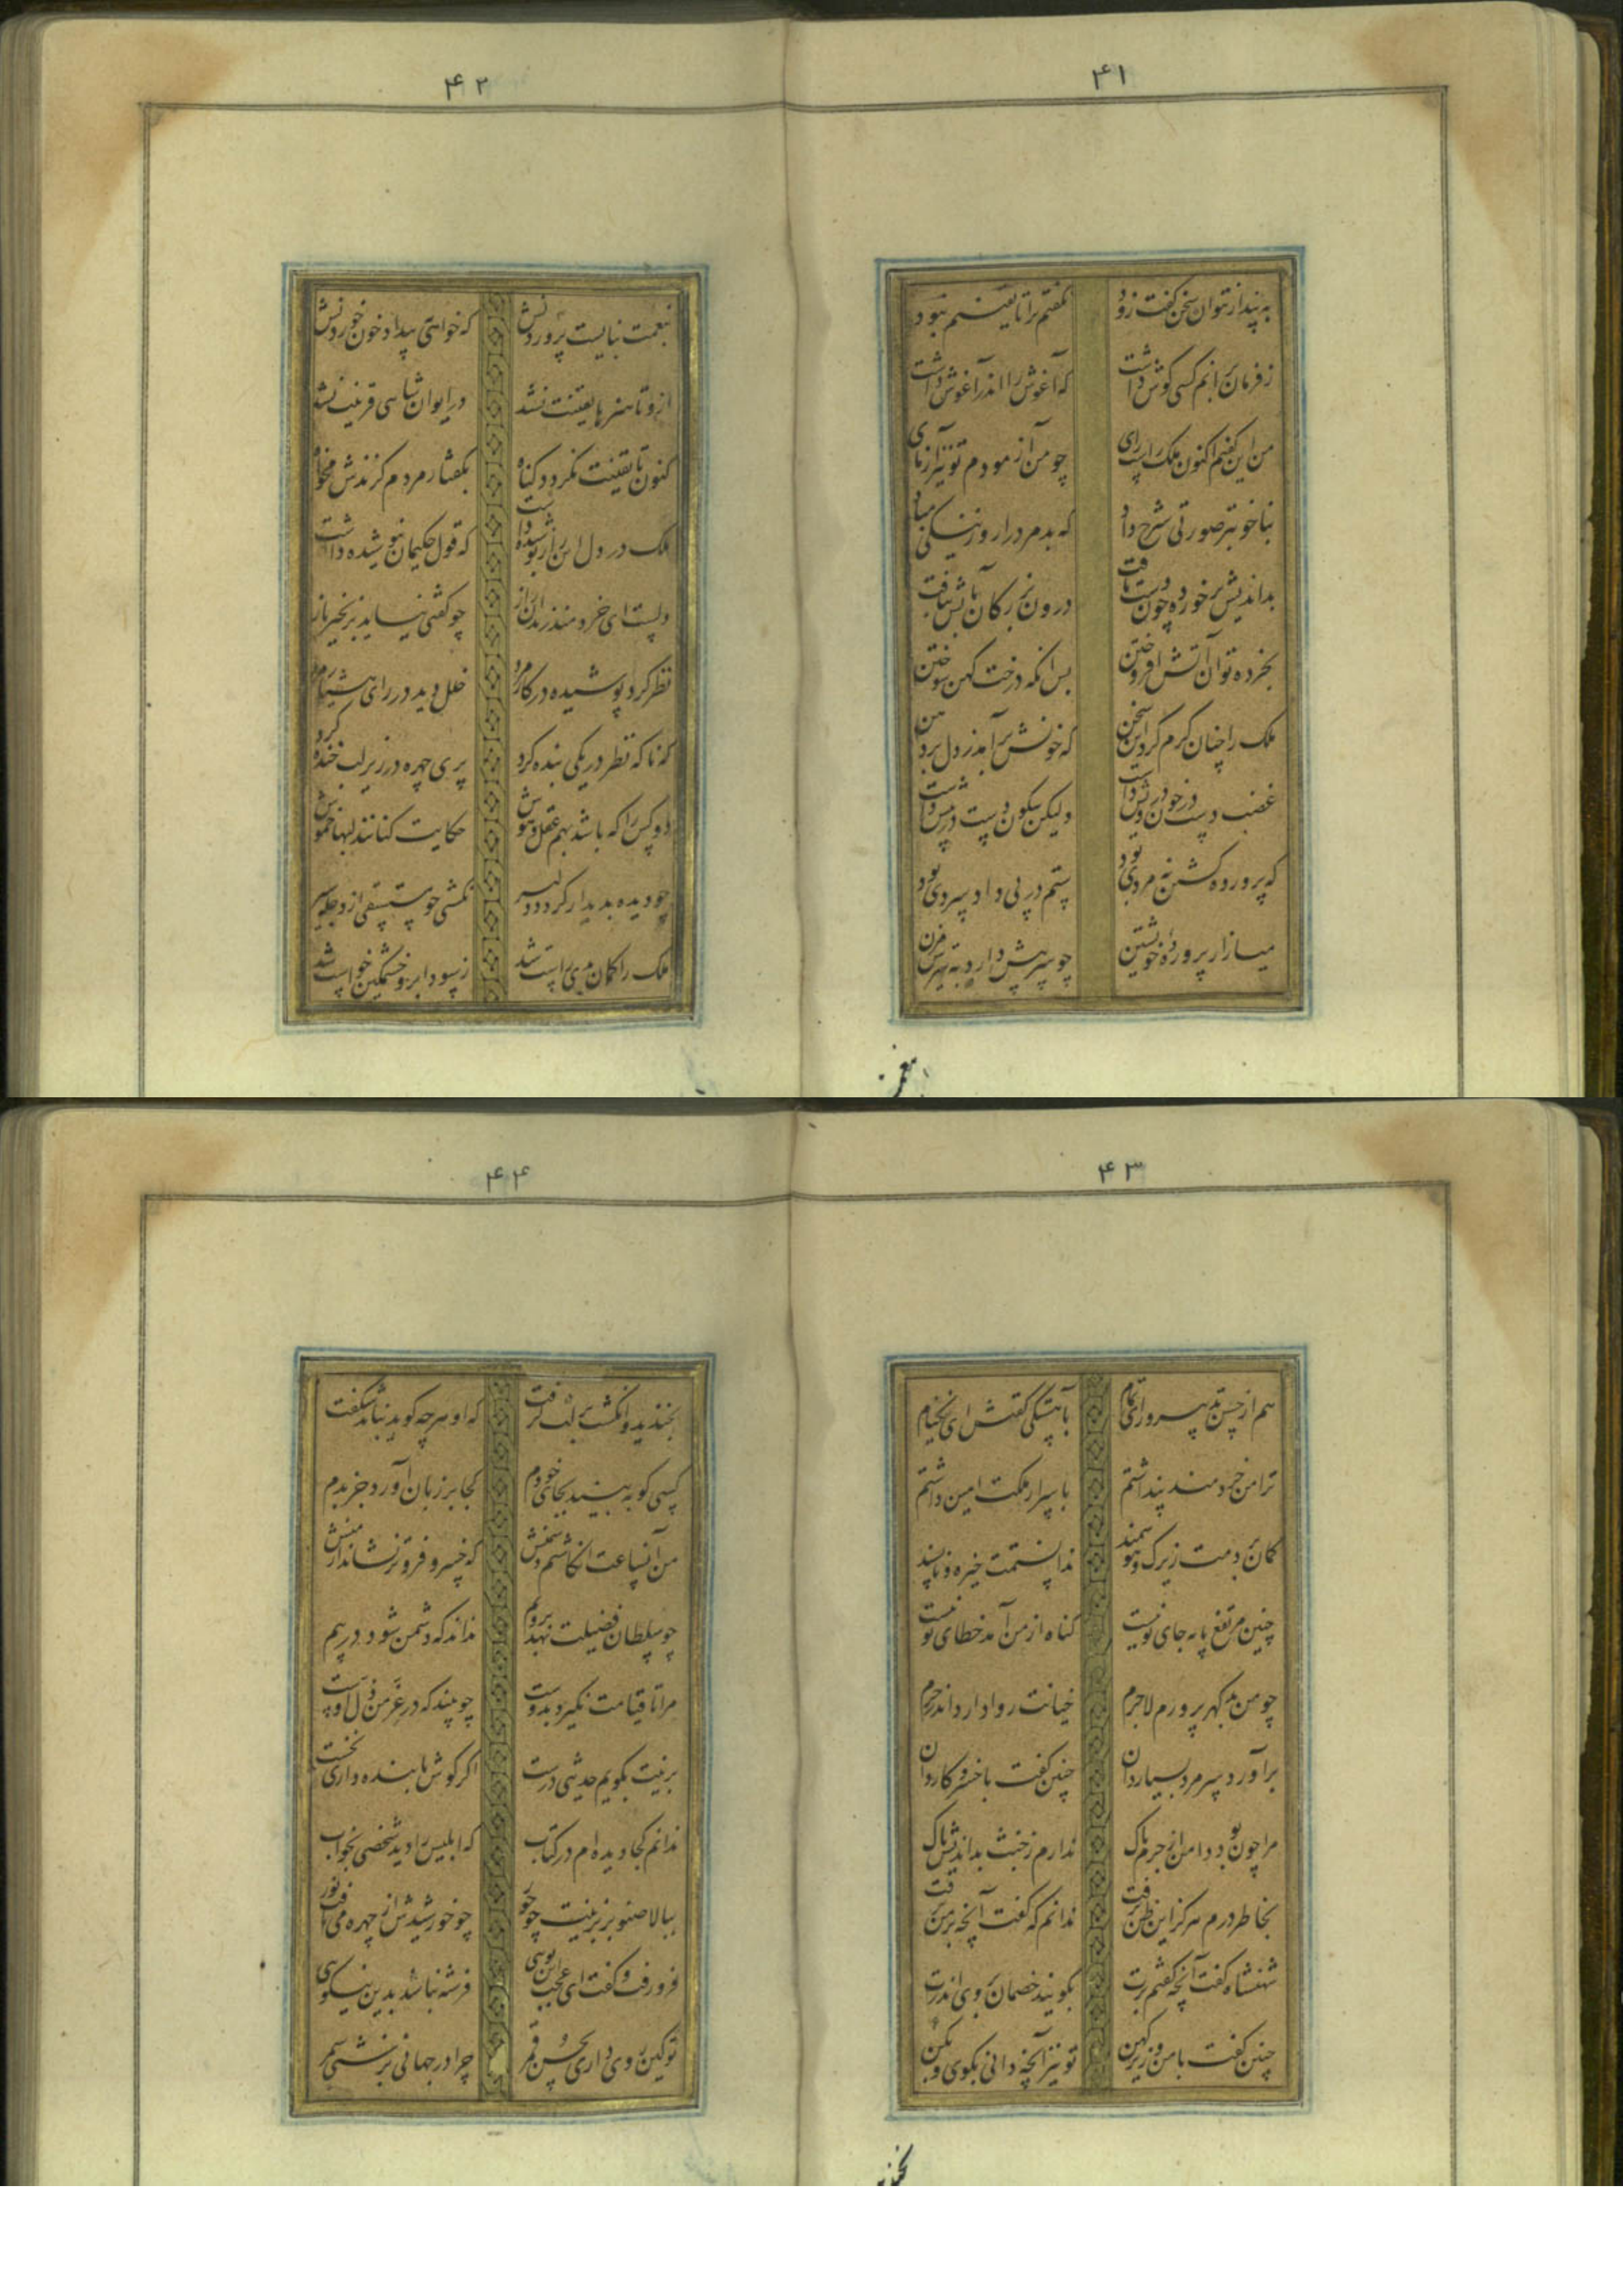 ۴۱
به پندار نتوان سخن گفت زود نگفتم ترا تا یقینم نبود
ز فرمان برانم کسی گوش داشت که آغوش را اندر آغوش داشت
من این گفتم اکنون ملک راست رای چو من آزمودم تو نیز آزمای
بناخوبتر صورتی شرح داد که بد مرد را روز نیکی مباد
بداندیش بر خورده چون دست یافت درون بزرکان بآتش بتافت
بخرده توان آتش افروختن پس آنکه درخت کهن سوختن
ملک را چنان کرم کرد این سخن که خونش برآمد ز دل بر دهن
غضب دست در خون درویش داشت ولیکن سکون دست در پیش داشت
که پرورده کشتن نه مردی بود ستم در پی داد سردی بود
میازار پرورده خویشتن چو سر پیش دارد به تیرش مزن
۴۲
بنعمت نبایست پروردنش که خواهی ببیداد خون خوردنش
ازو تا هنرها یقینت نشد در ایوان شاهی قرینت نشد
کنون تا یقینت نکردد کناه بکفتار مردم کزندش مخواه
ملک در دل این راز پوشیده داشت که قول حکیمان نیوشیده داشت
دلست ای خردمند زندان راز چو کفتی نیاید بزنجیر باز
نظر کرد پوشیده در کار مرد خلل دید در رای هشیار مرد
که ناکه نظر در یکی بنده کرد پری چهره در زیر لب خنده کرد
دو کس را که باشد بهم عقل و هوش حکایت کنانند لبها خموش
چو دیده بدیدار کردد دلیر نکشتی چو مستسقی از دجله سیر
ملک را کمان بدی راست شد ز سودا برو خشمکین خواست شد
۴۳
هم از حسن تدبیر و رای تمام بآهستکی کفتش ای نیکنام
ترا من خردمند پنداشتم باسرار ملکت امین داشتم
کمان بردمت زیرک و هوشمند ندانستمت خیره و ناپسند
چنین مرتفع پایه جای تو نیست کناه از من آمد خطای تو نیست
چو من بد کهر پرورم لاجرم خیانت روا دارد اندر حرم
برآورد سر مرد بسیار دان چنین کفت با خسرو کاردان
مرا چون بود دامن از جرم پاک ندارم ز خبث بداندیش باک
بخاطر درم هرکز این ظن نرفت ندانم که کفت آنچه بر من نرفت
شهنشاه کفت آنچه کفتم برت بکویند خصمان بروی اندرت
چنین کفت با من وزیر کهن تو نیز آنچه دانی بکوی و بکن
۴۴
بخندید و انکشت بر لب کرفت که او هرچه کوید نباشد شکفت
کسی کو به بیند بجای خودم کجا بر زبان آورد جز بدم
من آنساعت انکاشتم دشمنش که خسرو فروتر نشاند از منش
چو سلطان فضیلت نهد بر ویم نداند که دشمن شود در پیم
مرا تا قیامت نکیرد بدوست چو بیند که در عز من ذل اوست
برینت بکویم حدیثی درست اکر کوش با بنده داری نخست
ندانم کجا دیده ام در کتاب که ابلیس را دید شخصی بخواب
ببالا صنوبر بزیبنت چو حور چو خورشیدش از چهره می تافت نور
فرو رفت و کفت ای عجب این توئی فرشته نباشد بدین نیکوی
تو کین روی داری بحسن قمر چرا در جهانی بزشتی سمر